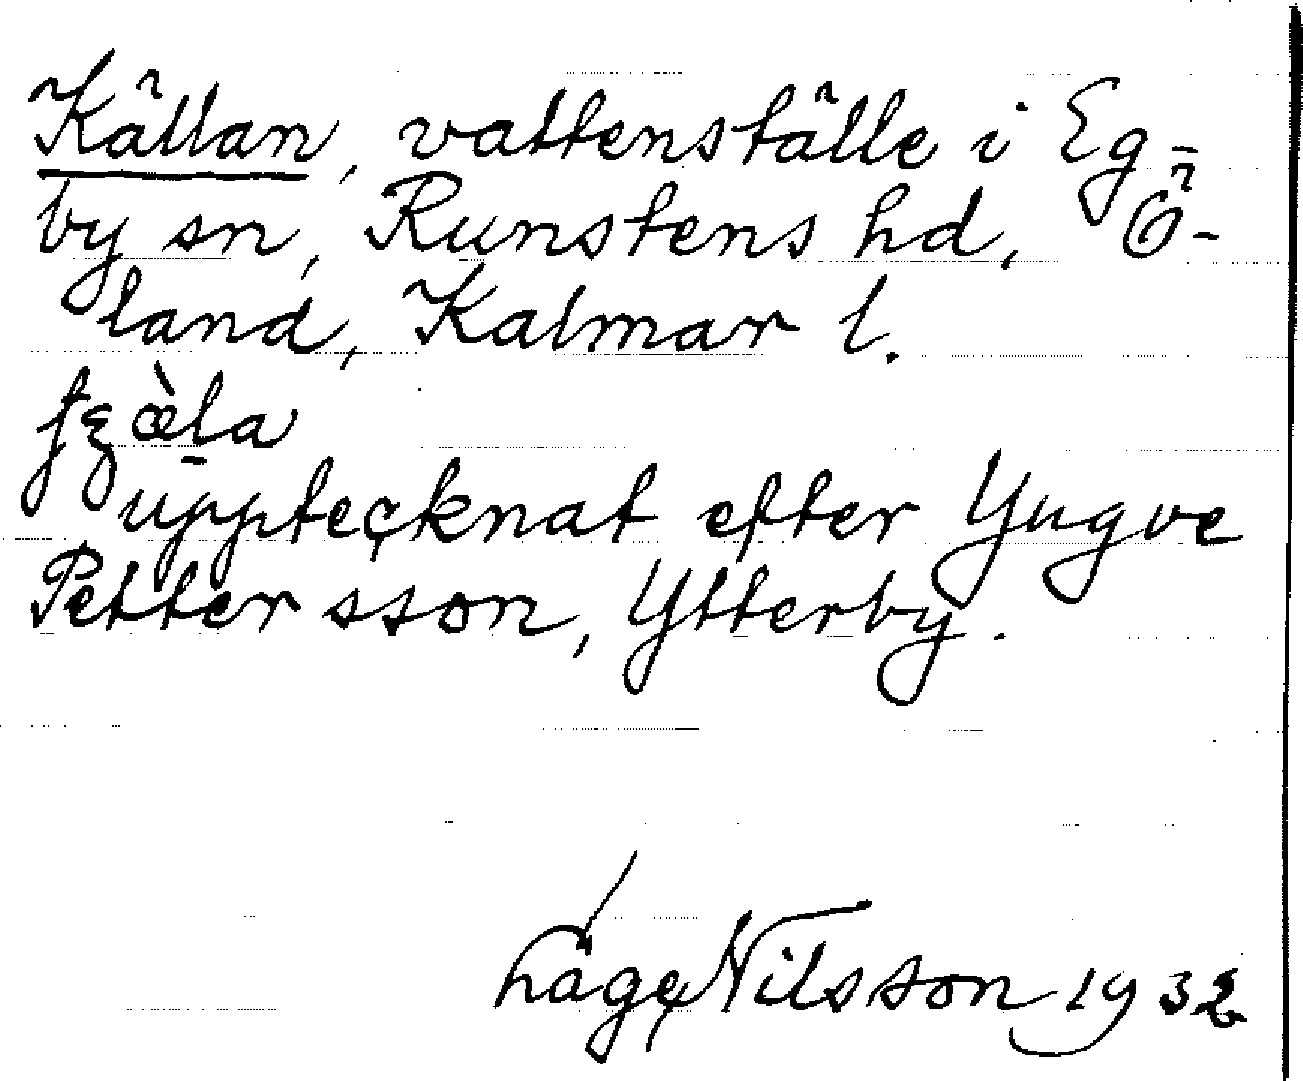 Källan, vattenställe i Eg-
by sn, Runstens hd, Ö-
land, Kalmar l.
upptecknat efter Yngve
Pettersson, Ytterby.
Låge Nilsson 1932